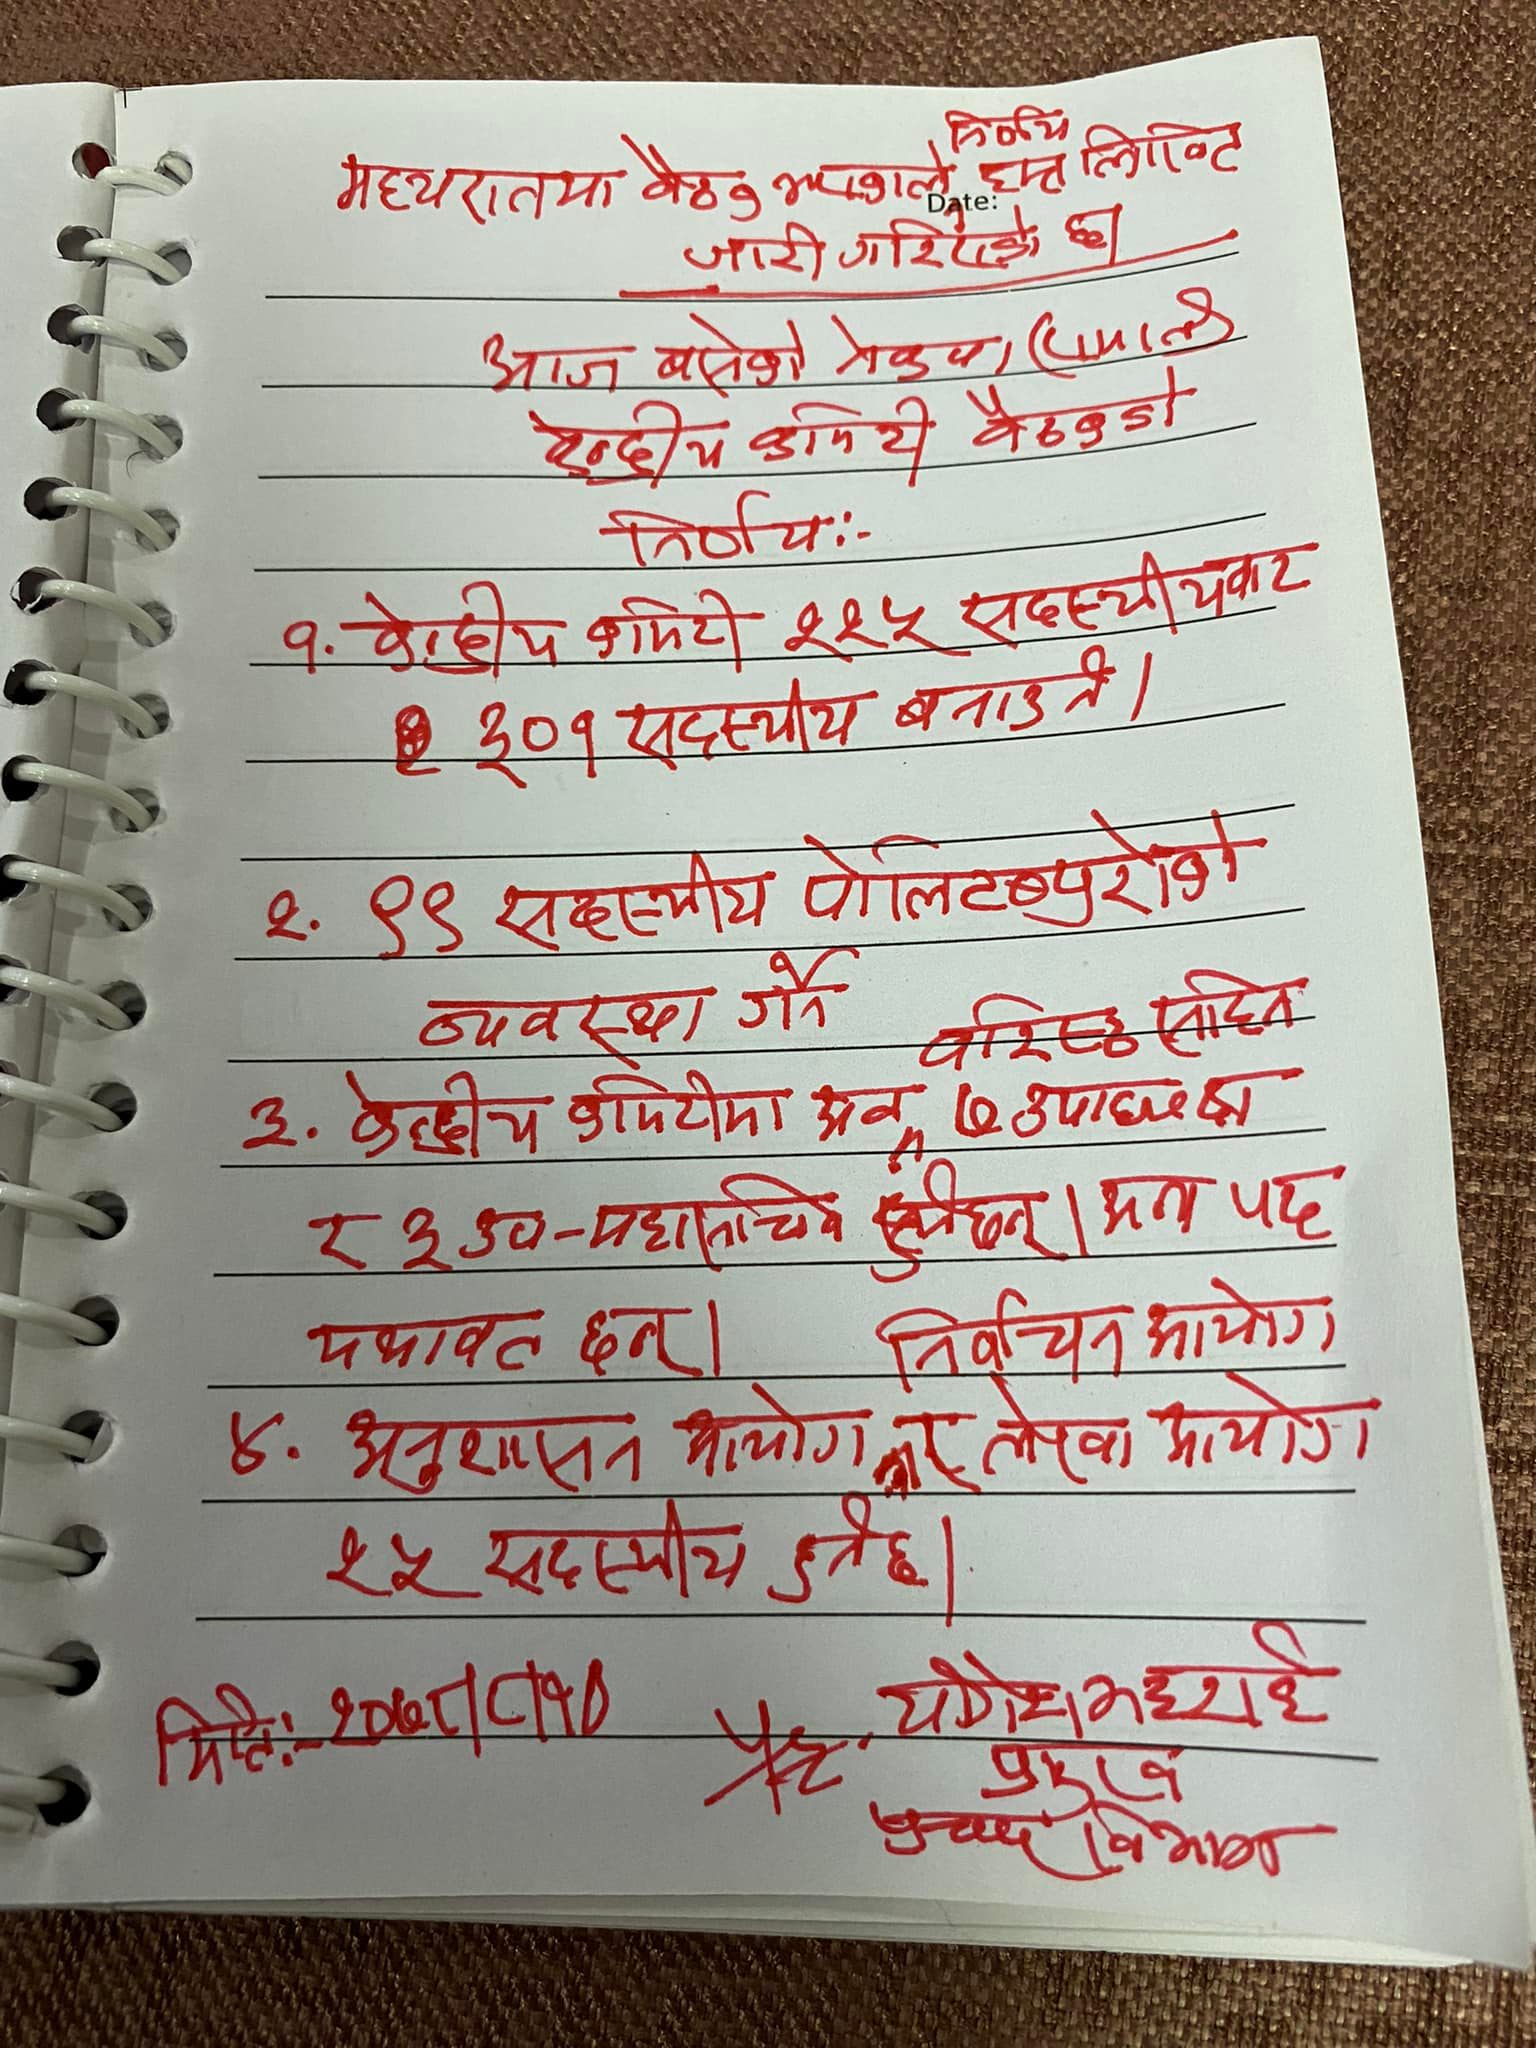 मध्यरातमा बैठक भएकोले निर्णय हस्त लिखित
Date:
जारी गरिएको छ।
आज बसेको नेकपा (एमाले)
केन्द्रीय कमिटी बैठकको
निर्णय:-
१. केन्द्रीय कमिटी २२५ सदस्यीयबाट
३०१ सदस्यीय बनाउने।
२. ९९ सदस्यीय पोलिटब्युरोको
व्यवस्था गर्ने
वरिष्ठ सहित
३. केन्द्रीय कमिटीमा अब ७ उपाध्यक्ष
र ३ उप-महासचिव हुनेछन्। अन्य पद
यथावत छन्।
निर्वाचन आयोग
४. अनुशासन आयोग र लेखा आयोग
२५ सदस्यीय हुनेछ।
मिति:- २०७८।८।१०
योगेश भट्टराई
प्रमुख
प्रचार विभाग